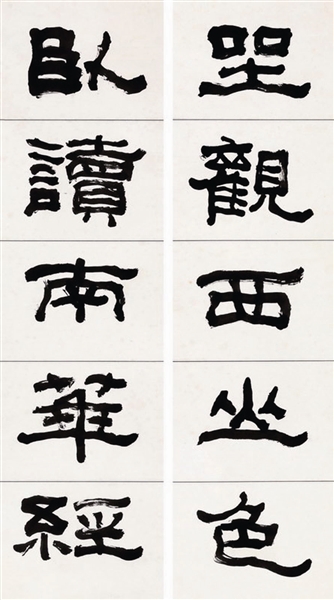 坐觀西山色
臥讀南華經